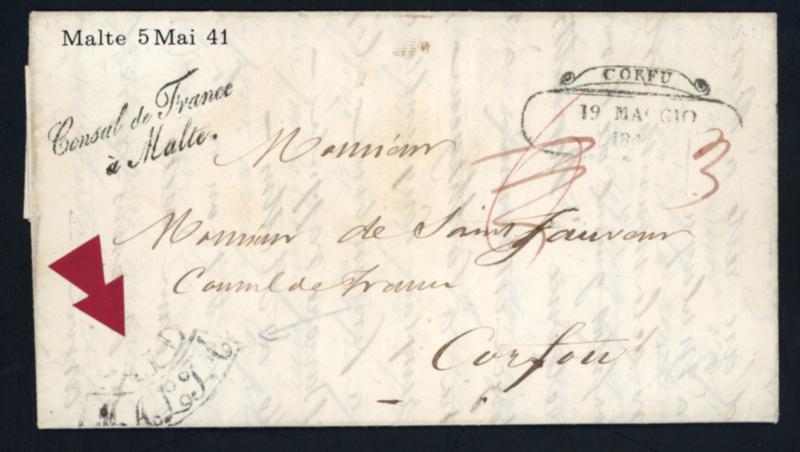 Malte 5 Mai 41
Consul de France
à Malte.
CORFU
19 MAGGIO
184
3
Monsieur
Monsieur de Saint Sauveur
Consul de France
Corfou
PAID
MALTA